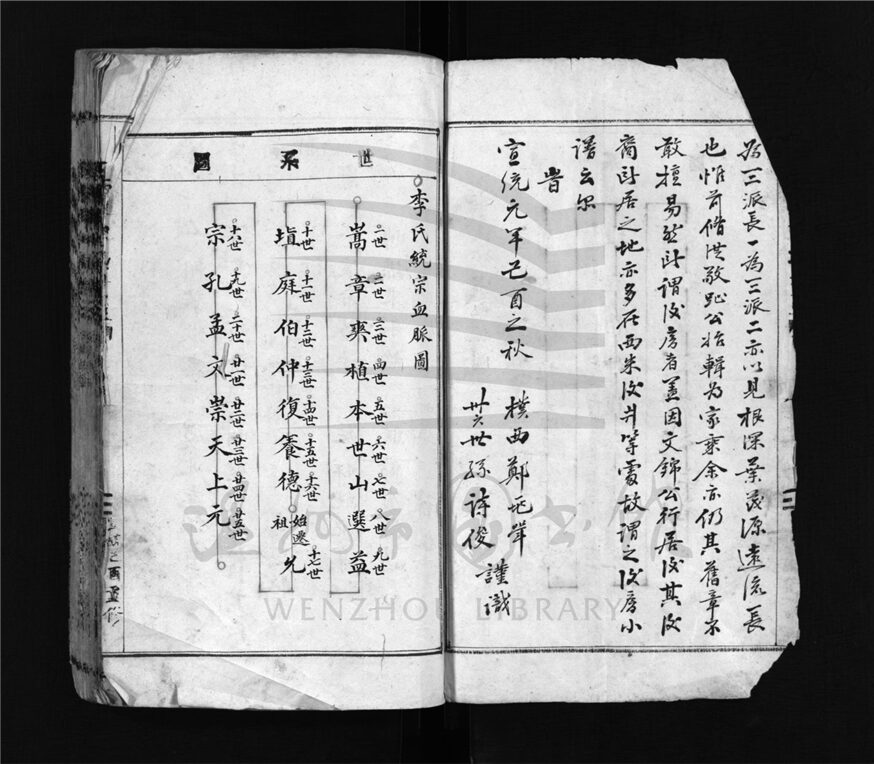 為三派長一為三派二亦以見根深葉茂源遠流長
也惟前脩洪敬趾公始輯為家乘余亦仍其舊章不
敢擅易然所謂後房者蓋因文錦公行居後其後
裔所居之地亦多在西朱後井等處故謂之後房小
譜云爾
旹
宣統元年己酉之秋 樸西鄭
廿六世孫詩俊 謹識
世系圖
李氏統宗血脈圖
一世 二世 三世 四世 五世 六世 七世 八世 九世
嵩章爽植本世山選益
十世 十一世 十二世 十三世 十四世 十五世 十六世 十七世
塤庭伯仲復養德 始遷祖 允
十八世 十九世 二十世 廿一世 廿二世 廿三世 廿四世 廿五世
宗孔孟文崇天上元
己酉重修
WENZHOU LIBRARY